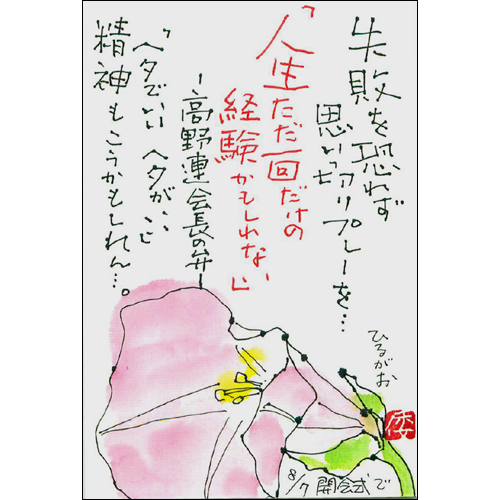 失敗を恐れず
思いっ切りプレーを…
「人生ただ一回だけの
経験かもしれない」
ー高野連会長の弁ー
「ヘタでいい ヘタがいい」
精神もこうかもしれん…。
ひるがお
倭
8/7 開会式で